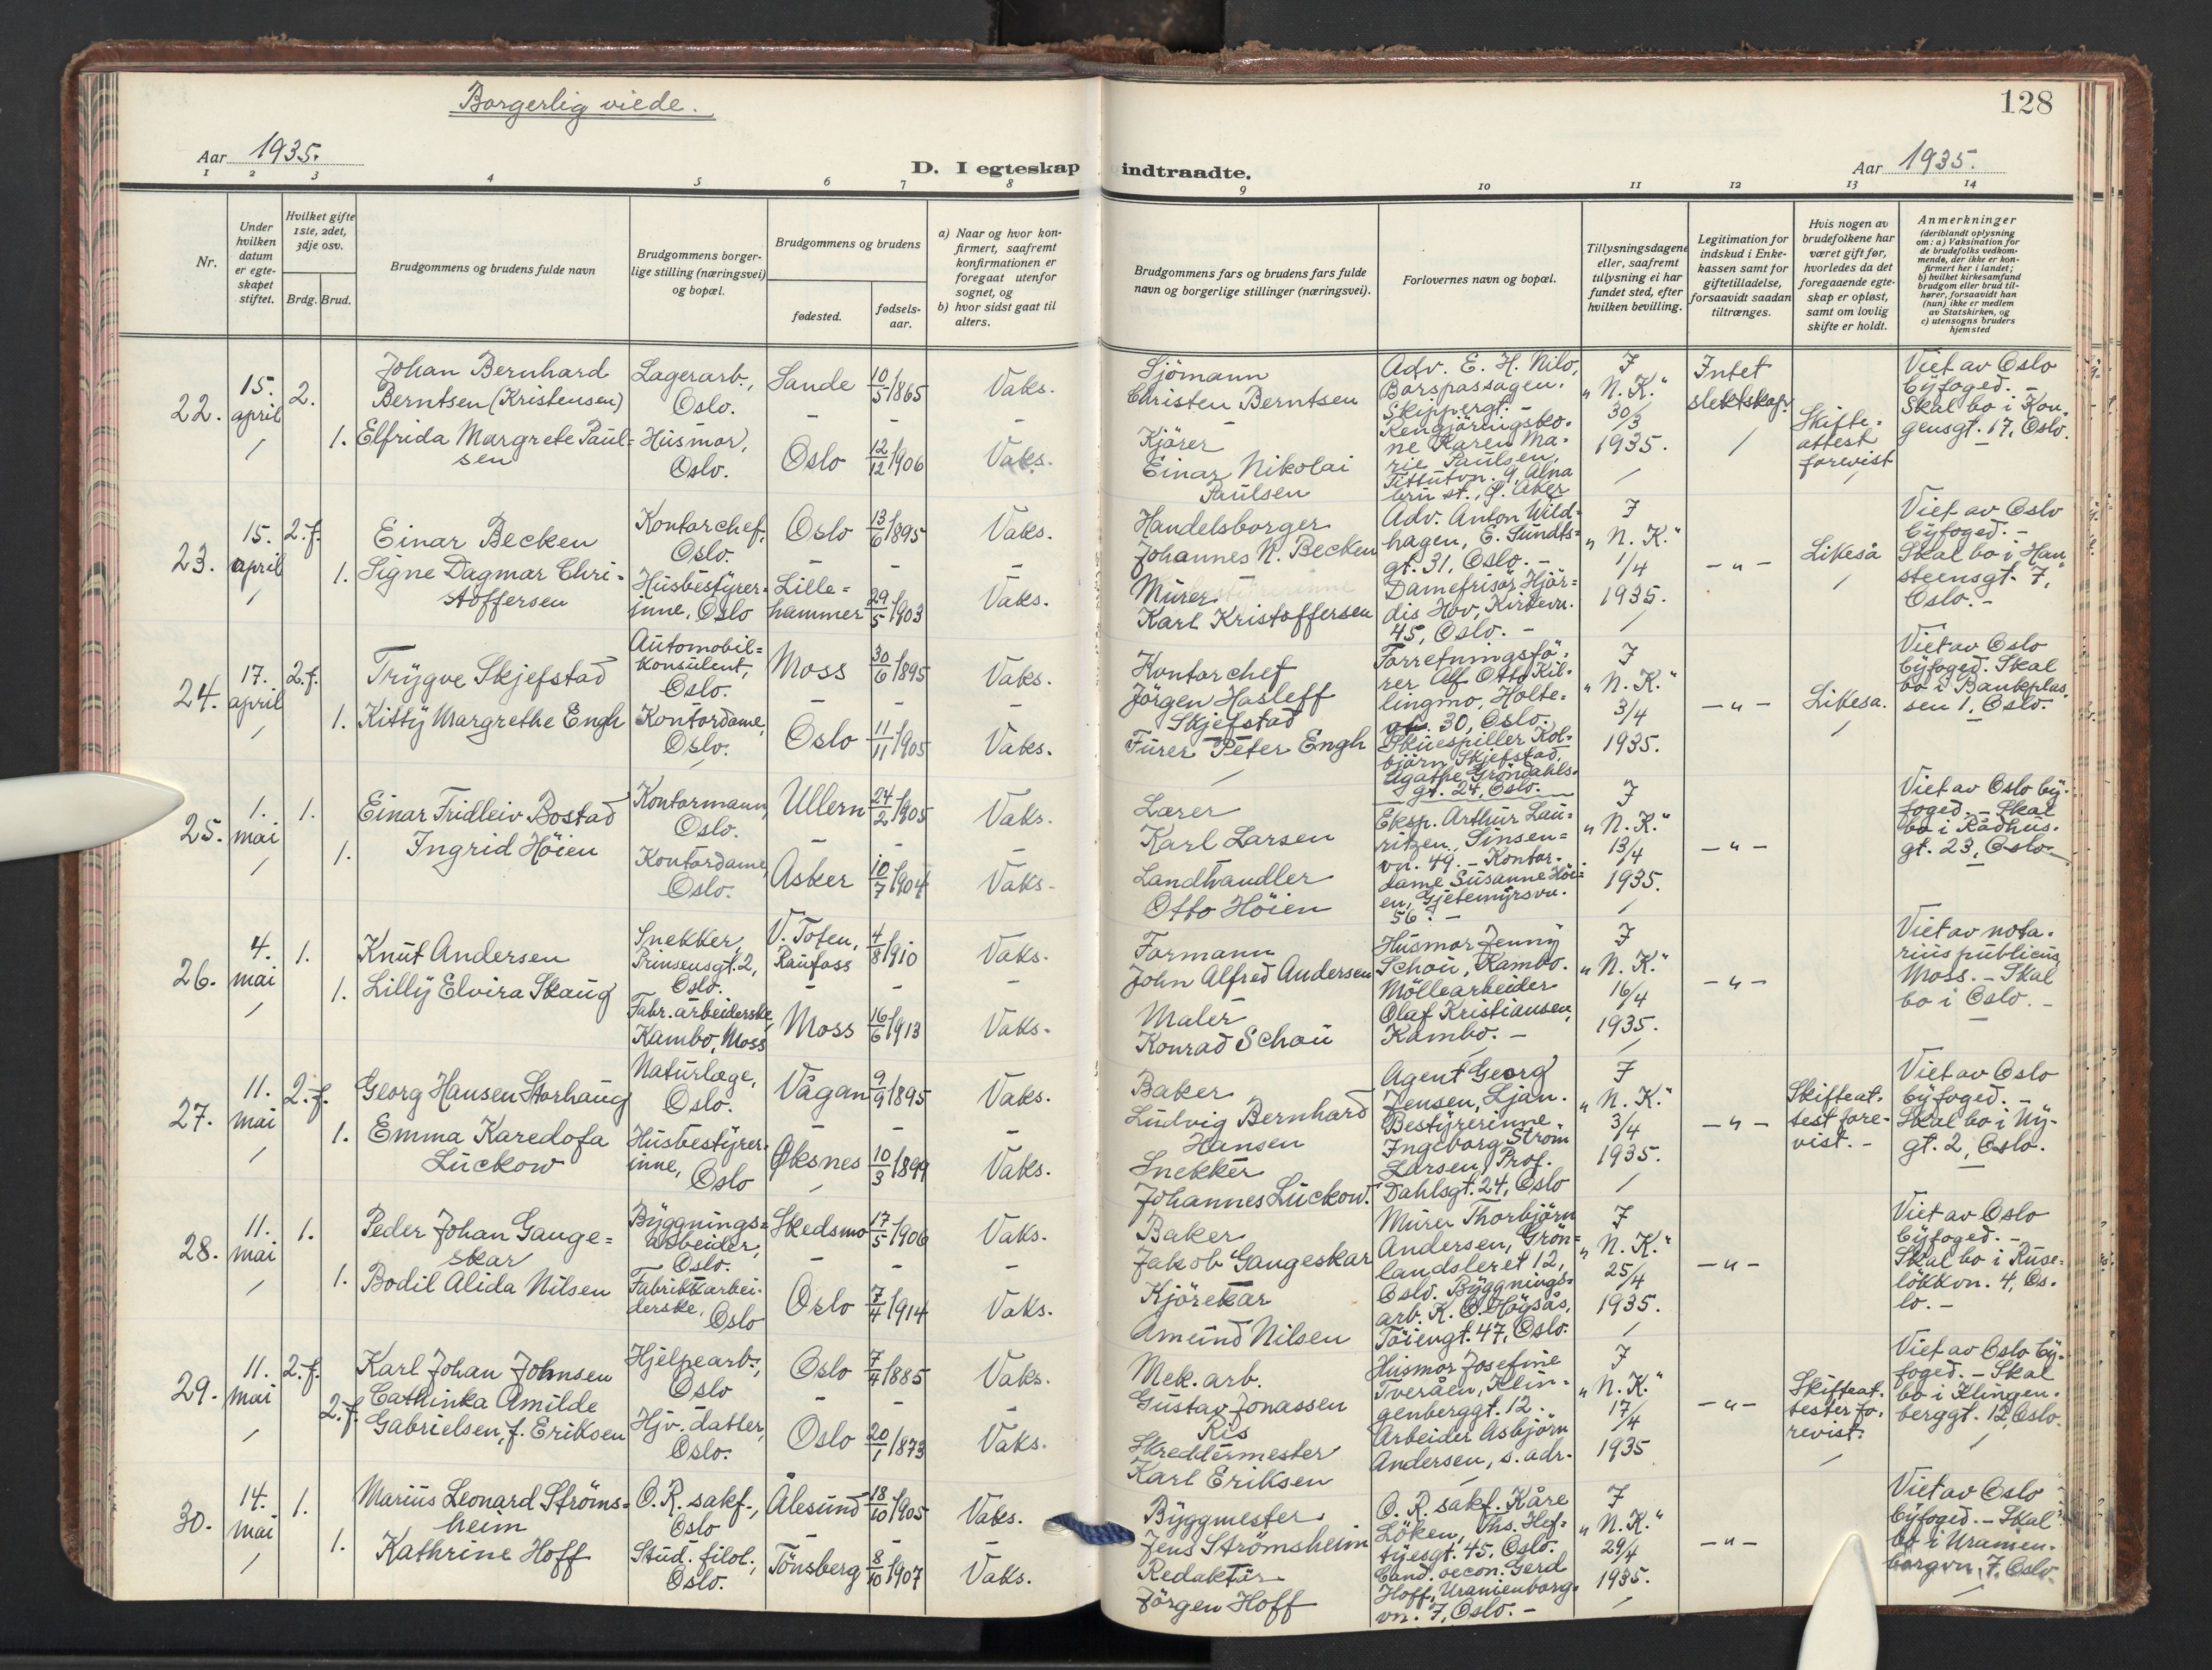 Borgerlig viede.
128
Aar 1935.
D. I egteskap indtraadte.
Aar 1935.
1 2 3 4 5 6 7 8 9 10 11 12 13 14
Nr.
Under hvilken datum er egteskapet stiftet.
Hvilket gifte 1ste, 2det, 3dje osv.
Brdg. Brud.
Brudgommens og brudens fulde navn
Brudgommens borgerlige stilling (næringsvei) og bopæl.
Brudgommens og brudens
fødested.
fødselsaar.
a) Naar og hvor konfirmert, saafremt konfirmationen er foregaat utenfor sognet, og
b) hvor sidst gaat til alters.
Brudgommens fars og brudens fars fulde navn og borgerlige stillinger (næringsvei).
Forlovernes navn og bopæl.
Tillysningsdagene eller, saafremt tillysning ei har fundet sted, efter hvilken bevilling.
Legitimation for indskud i Enkekassen samt for giftetilladelse, forsaavidt saadan tiltrænges.
Hvis nogen av brudefolkene har været gift før, hvorledes da det foregaaende egteskap er opløst, samt om lovlig skifte er holdt.
Anmerkninger
(deriblandt oplysning om: a) Vaksination for de brudefolks vedkommende, der ikke er konfirmert her i landet;
b) hvilket kirkesamfund brudgom eller brud tilhører, forsaavidt han (hun) ikke er medlem av Statskirken, og
c) utensogns bruders hjemsted
22. 15. april
2. Johan Bernhard Berntsen (Kristensen)
Lagerarb., Oslo.
Sande 10/5 1865 Vaks.
1. Elfrida Margrete Paulsen
Husmor, Oslo.
Oslo 12/12 1906 Vaks.
Sjömann Christen Berntsen
Kjörer Einar Nikolai Paulsen
Adv. E. H. Nilo, Börspassagen, Skippergt. -
Rengjöringskone Karen Marie Paulsen, 9, Alnabru st., Ö. Aker
I "N. K." 30/3 1935.
Intet slektskap.
Skifteattest forevist
Viet av Oslo byfoged. - Skal bo i Kongensgt. 17, Oslo.
23. 15. april
2. f. Einar Becken
Kontorchef, Oslo.
Oslo 13/6 1895 Vaks.
1. Signe Dagmar Christoffersen
Husbestyrerinne, Oslo
Lillehammer 29/5 1903 Vaks.
Handelsborger Johannes N. Becken
Murer Karl Kristoffersen
Adv. Anton Wildhagen, E. Sundtsgt. 31, Oslo. -
Damefrisör Hjördis Hov, Kirkevn. 45, Oslo. -
I "N. K." 1/4 1935.
- " -
Likeså
Viet av Oslo byfoged. - Skal bo i Hansteensgt. 7, Oslo. -
24. 17. april
2. f. Trygve Skjefstad
Automobilkonsulent, Oslo.
Moss 30/6 1895 Vaks.
1. Kitty Margrethe Engh
Kontordame, Oslo.
Oslo 11/11 1905 Vaks.
Kontorchef Jörgen Hasleff Skjefstad
Furer Peter Engh
Forretningsförer Alf Otto Killingmo, Holtegt. 30, Oslo.
Skuespiller Kolbjörn Skjefstad, Agathe Gröndahlsgt. 24, Oslo.
I "N. K." 3/4 1935.
- " -
Likesa.
Viet av Oslo byfoged. Skal bo i Bankplassen 1, Oslo.
25. 1. mai
1. Einar Fridleiv Bostad
Kontormann, Oslo.
Ullern 24/2 1905 Vaks.
1. Ingrid Höien
Kontordame, Oslo.
Asker 10/7 1904 Vaks.
Lærer Karl Larsen
Landhandler Otto Höien
Eksp. Arthur Lauritzen, Sinsenvn. 49. -
Kontordame Susanne Höien, Gjetemyrsvn. 56. -
I "N. K." 13/4 1935.
- " -
Viet av Oslo byfoged. - Skal bo i Rådhusgt. 23, Oslo.
26. 4. mai
1. Knut Andersen
Snekker, Prinsensgt. 2, Oslo.
V. Toten, Raufoss 4/8 1910 Vaks.
1. Lilly Elvira Skaug
Fabr. arbeiderske, Kambo, Moss
Moss 16/6 1913 Vaks.
Formann John Alfred Andersen
Maler Konrad Schou
Husmor Jenny Schou, Kambo.
Möllearbeider Olaf Kristiansen, Kambo. -
I "N. K." 16/4 1935.
- " -
Viet av notarius publicus, Moss. - Skal bo i Oslo. -
27. 11. mai
2. f. Georg Hansen Storhaug
Naturlæge, Oslo.
Vågan 9/9 1895 Vaks.
1. Emma Karedofa Luckow
Husbestyrerinne, Oslo
Øksnes 10/3 1899 Vaks.
Baker Ludvig Bernhard Hansen
Snekker Johannes Luckow.
Agent Georg Jensen, Ljan.
Bestyrerinne Ingeborg Ström Larsen, Prof. Dahlsgt. 24, Oslo
I "N. K." 3/4 1935.
- " -
Skifteattest forevist. -
Viet av Oslo byfoged. - Skal bo i Nygt. 2, Oslo.
28. 11. mai
1. Peder Johan Gangeskar
Bygningsarbeider, Oslo.
Skedsmo 17/5 1906 Vaks.
1. Bodil Alida Nilsen
Fabrikkarbeiderske, Oslo
Oslo 7/4 1914 Vaks.
Baker Jakob Gangeskar
Kjörekar Amund Nilsen
Murer Thorbjörn Andersen, Grönlandsleret 12, Oslo.
Bygningsarb. K. O. Höysås, Töiengt. 47, Oslo.
I "N. K." 25/4 1935.
- " -
Viet av Oslo byfoged. - Skal bo i Ruselökkvn. 4, Oslo. -
29. 11. mai
2. f. Karl Johan Johnsen
Hjelpearb., Oslo
Oslo 7/4 1885 Vaks.
2. f. Cathinka Amilde Gabrielsen, f. Eriksen
Hjv. datter, Oslo.
Oslo 20/1 1873 Vaks.
Mek. arb. Gustav Jonassen Ris
Skreddermester Karl Eriksen
Husmor Josefine Tveråen, Klingenberggt. 12.
Arbeider Asbjörn Andersen, s. adr.
I "N. K." 17/4 1935
- " -
Skifteattester forevist.
Viet av Oslo byfoged. - Skal bo i Klingenberggt. 12, Oslo.
30. 14. mai
1. Marius Leonard Strömsheim
O. R. sakf., Oslo
Ålesund 18/10 1905 Vaks.
1. Kathrine Hoff
Stud. filol., Oslo.
Tönsberg 8/10 1907 Vaks.
Byggmester Jens Strömsheim
Redaktör Jörgen Hoff
O. R. sakf. Kåre Löken, Ths. Heftyesgt. 45, Oslo.
Cand. oecon. Gerd Hoff, Uranienborgvn. 7, Oslo. -
I "N. K." 29/4 1935.
- " -
Viet av Oslo byfoged. - Skal bo i Uranienborgvn. 7, Oslo.